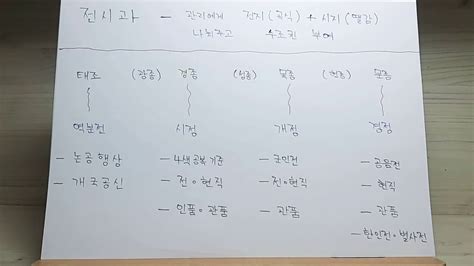 전시과 - 관리에게 전지(곡식) + 시지(땔감)
나눠주고 수조권 부여
태조 (광종) 경종 (성종) 목종 (현종) 문종
역분전 시정 개정 경정
- 논공행상 - 4색공복기준 - 군인전 - 공음전
- 개국공신 - 전•현직 - 전•현직 - 현직
- 인품•관품 - 관품 - 관품
- 한인전•별사전